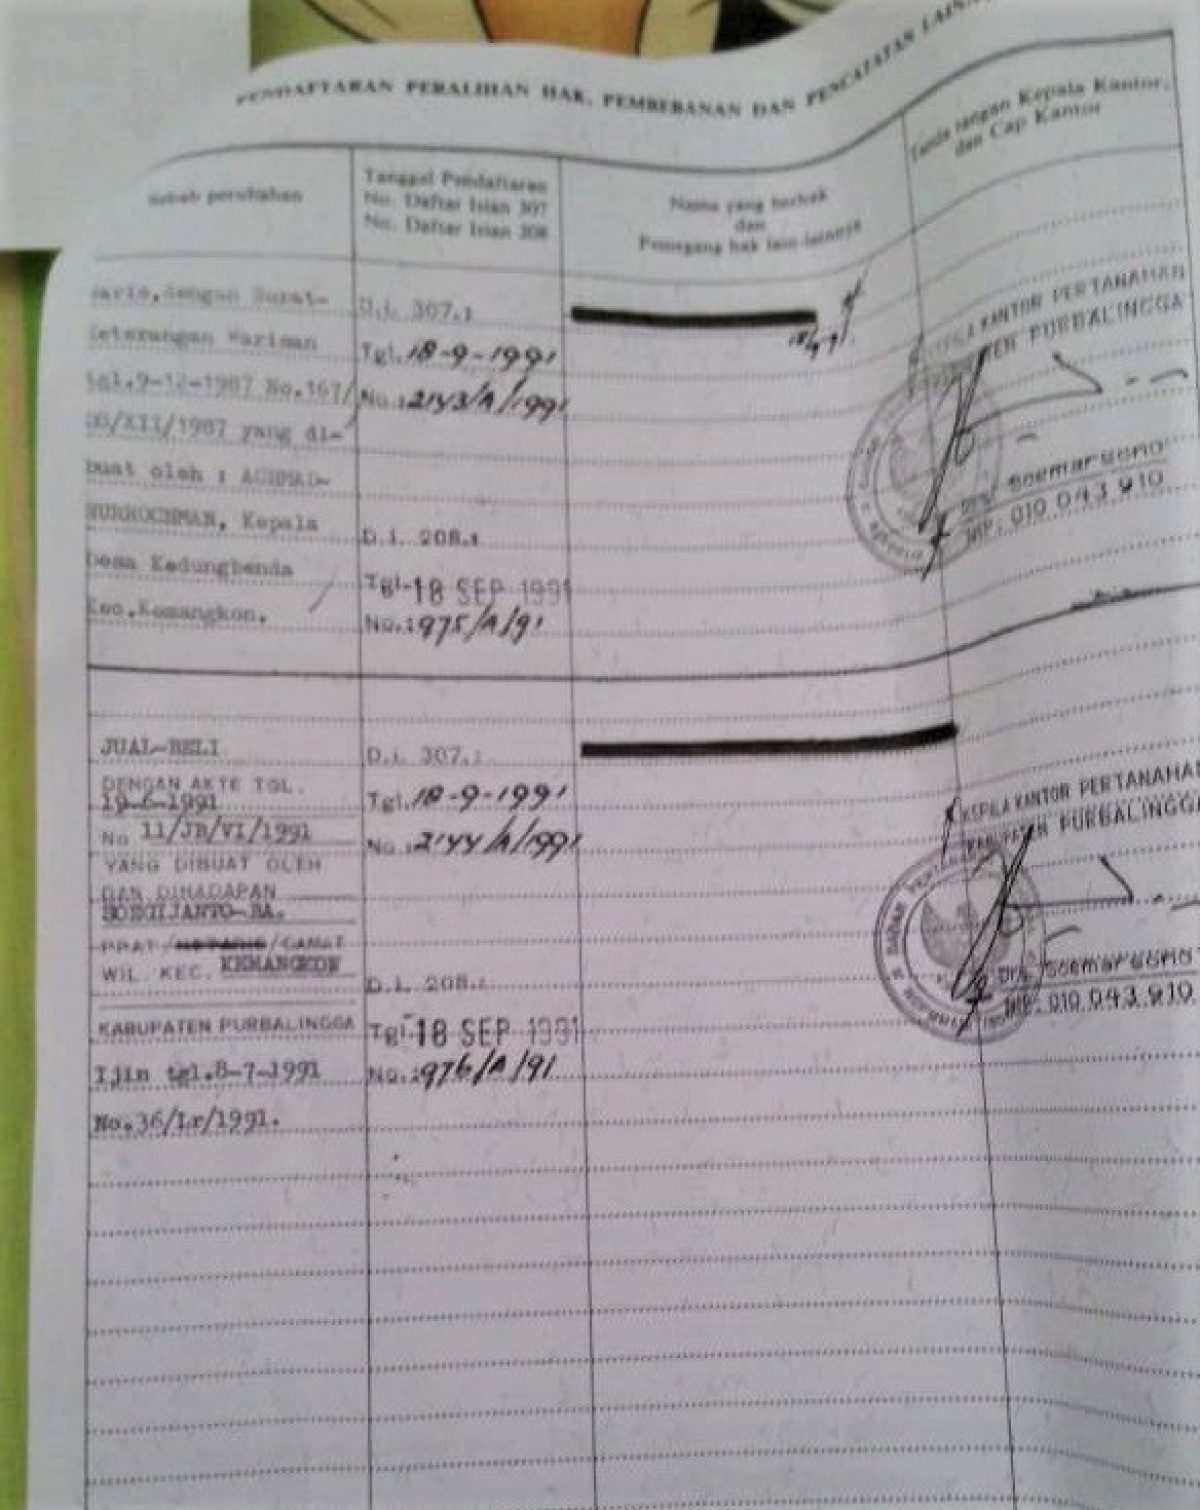 PENDAFTARAN PERALIHAN HAK, PEMBEBANAN DAN PENCATATAN LAINN
Sebab perubahan
Tanggal Pendaftaran
No. Daftar Isian 307
No. Daftar Isian 208
Nama yang berhak
dan
Pemegang hak lain-lainnya
Tanda tangan Kepala Kantor,
dan Cap Kantor
Waris,dengan Surat-
Keterangan Warisan
tgl.9-12-1987 No.167/
XII/1987 yang di-
buat oleh :
NURROCHMAN, Kepala
Desa Kedungbenda
Kec.Kemangkon.
D.i. 307.:
Tgl. 18-9-1991
No.: 2143/A/1991
D.i. 208.:
Tgl. 18 SEP 1991
No.: 975/A/91
KEPALA KANTOR PERTANAHAN
PURBALINGGA
Drs. Soemarsono
NIP. 010 043 910
JUAL-BELI
DENGAN AKTE TGL.
19-6-1991
No 11/JB/VI/1991
YANG DIBUAT OLEH
DAN DIHADAPAN
SOEGIJANTO-BA.
PPAT/NOTARIS/CAMAT
WIL. KEC. KEMANGKON
KABUPATEN PURBALINGGA
Ijin tgl.8-7-1991
No.36/Lr/1991.
D.i. 307.:
Tgl. 18-9-1991
No.: 2144/A/1991
D.i. 208.:
Tgl. 18 SEP 1991
No.: 976/A/91
KEPALA KANTOR PERTANAHAN
KABUPATEN PURBALINGGA
BADAN PERTANAHAN
Drs. Soemarsono
NIP. 010.043.910